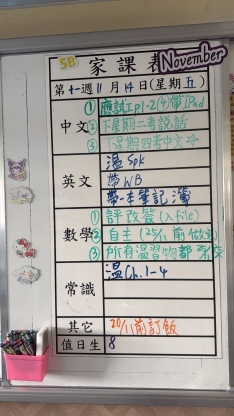 November
5B 家課表
第十一週 11月14日(星期五)
中文
① 應試工p1-2(4)帶iPad
② 下星期二考說話
③ 下星期四考中文
英文
溫 Spk
帶 WB
帶一本筆記簿
數學
① 評改簽(入file)
② 自主(25/11前做完)
③ 所有溫習物都
常識
溫Ch.1-4
其它
20/11前訂飯
值日生
8